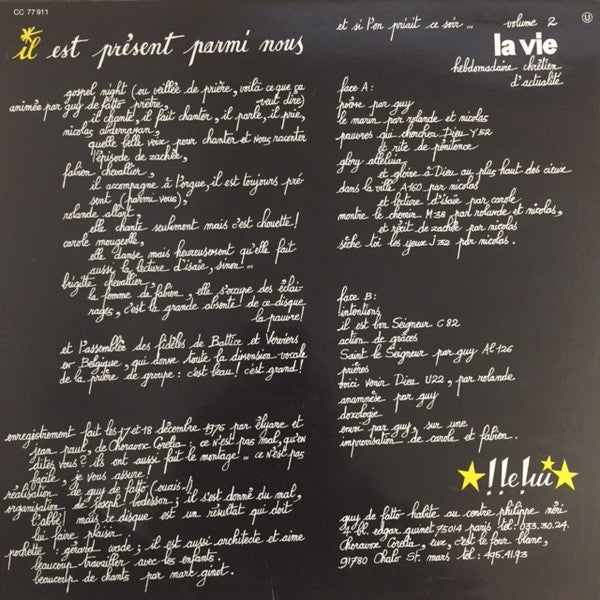 CC 77 911
il est présent parmi nous
gospel night (ou veillée de prière, voilà ce que ça
veut dire)
animée par guy de fatto prêtre,
il chante, il fait chanter, il parle, il prie,
nicolas abderraman,
quelle belle voix pour chanter et nous raconter
l'épisode de zachée,
fabien chevallier,
il accompagne à l'orgue, il est toujours pré-
sent (parmi vous),
rolande allart,
elle chante seulement mais c'est chouette!
carole mougeolle,
elle danse mais heureusement qu'elle fait
aussi la lecture d'isaïe, sinon...
brigitte chevallier,
la femme de fabien, elle s'occupe des éclai-
rages, c'est la grande absente de ce disque
la pauvre!
et l'assemblée des fidèles de Battice et Verviers
en Belgique, qui donne toute la dimension vocale
de la prière de groupe: c'est beau! c'est grand!
enregistrement fait les 17 et 18 décembre 1976 par élyane et
jean paul, de Choravox Corelia: ce n'est pas mal, qu'en
dites vous? ils ont aussi fait le montage... ce n'est pas
facile, je vous assure!
réalisation de guy de fatto (ouais!)
organisation de joseph bodesson; il s'est donné du mal,
l'abbé! mais ce disque est un résultat qui doit
lui faire plaisir.
pochette: gérard; il est aussi architecte et aime
beaucoup travailler avec les enfants.
beaucoup de chants par marc ginot.
et si l'on priait ce soir... volume 2
U
la vie
hebdomadaire chrétien
d'actualité
face A:
poème par guy
le marin par rolande et nicolas
pauvres qui cherchez Dieu Y 52
et rite de pénitence
glory alleluia
et gloire à Dieu au plus haut des cieux
dans la ville A 160 par nicolas
et lecture d'isaïe par carole
montre le chemin M 38 par rolande et nicolas,
et récit de zachée par nicolas
sèche toi les yeux J 39 par nicolas.
face B:
intentions
il est bon Seigneur C 82
action de grâces
Saint le Seigneur par guy AL 126
prières
voici venir Dieu U 22, par rolande
anamnèse par guy
doxologie
envoi par guy, sur une
improvisation de carole et fabien.
!!le lui
guy de fatto habite au centre philippe néri
4 bl. edgar quinet 75014 paris tél: 033.30.24.
Choravox Corelia, eux, c'est le four blanc,
91780 Chalo St. mars tél: 495.41.93